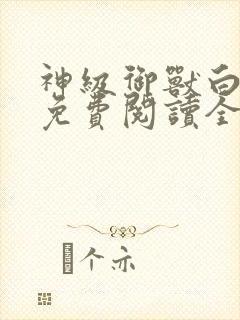 神級御獸白
免費閱讀全
个亦